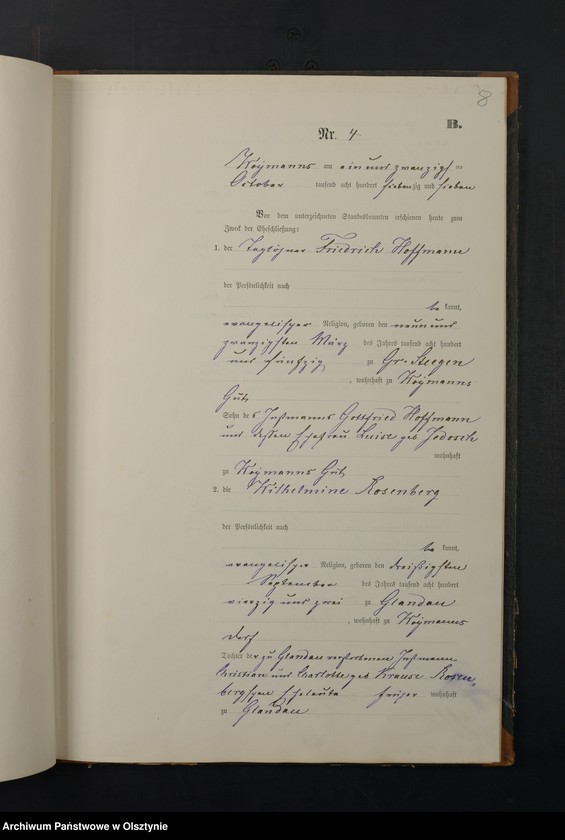 8
B.
Nr. 4.
am ein und zwanzigsten
October tausend acht hundert siebenzig und sieben
Vor dem unterzeichneten Standesbeamten erschienen heute zum
Zweck der Eheschließung:
1. der Taglöhner Friedrich Hoffmann
der Persönlichkeit nach
be kannt,
evangelischer Religion, geboren den neun und
zwanzigsten März des Jahres tausend acht hundert
und fünfzig zu Gr. Steegen
, wohnhaft zu
Gut
Sohn des Instmanns Gottfried Hoffmann
und dessen Ehefrau Luise geb. Jodosch
wohnhaft
zu Gut
2. die Wilhelmine Rosenberg
der Persönlichkeit nach
be kannt,
evangelischer Religion, geboren den dreißigsten
September des Jahres tausend acht hundert
vierzig und zwei zu Glandau
, wohnhaft zu
dorf
Tochter der zu Glandau verstorbenen Instmann
Christian und Charlotte geb. Krause Rosen
bergschen Eheleute früher wohnhaft
zu Glandau
Archiwum Państwowe w Olsztynie